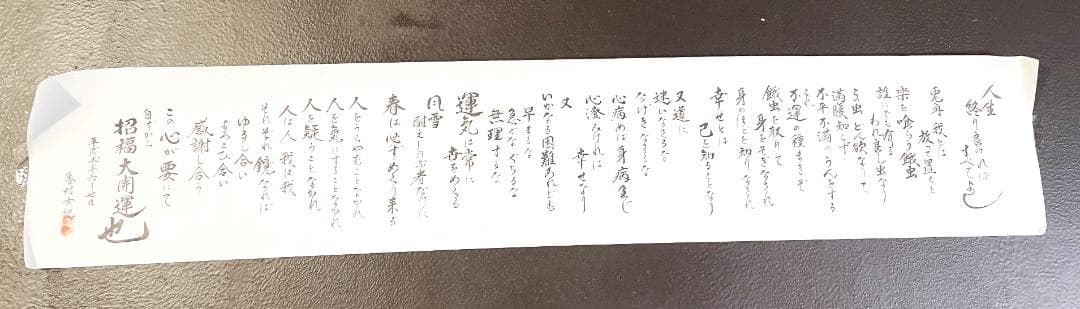 人生
終り良ければ
すべてよし
兎角我とは
放って置くと
楽を喰う餓虫
誰にでも有る
われ良し虫なり
この虫とん欲なりて
満腹知らず
不平不満のうんをする
これ
不運の種まきぞ
餓虫を取りて
身をそぎなされ
身のほどを知りなされ
幸せとは
己を知ることなり
又道に
迷いなさるな
なげきなさるな
心病めば身病まじ
心澄みければ
又 幸せなり
いかなる困難あれども
早まるな
急ぐな ぐちるな
無理するな
運気は常に
幸をめぐる
風雪
耐えしのぶ者なれば
春は必ずめぐり来る
人をうらやむことなかれ
人を気にすることなかれ
人を疑うことなかれ
人は人 我は我
それぞれ鏡なれば
ゆるし合い
よろこび合い
感謝し合う
この心が要にて
自ずから
招福大開運也